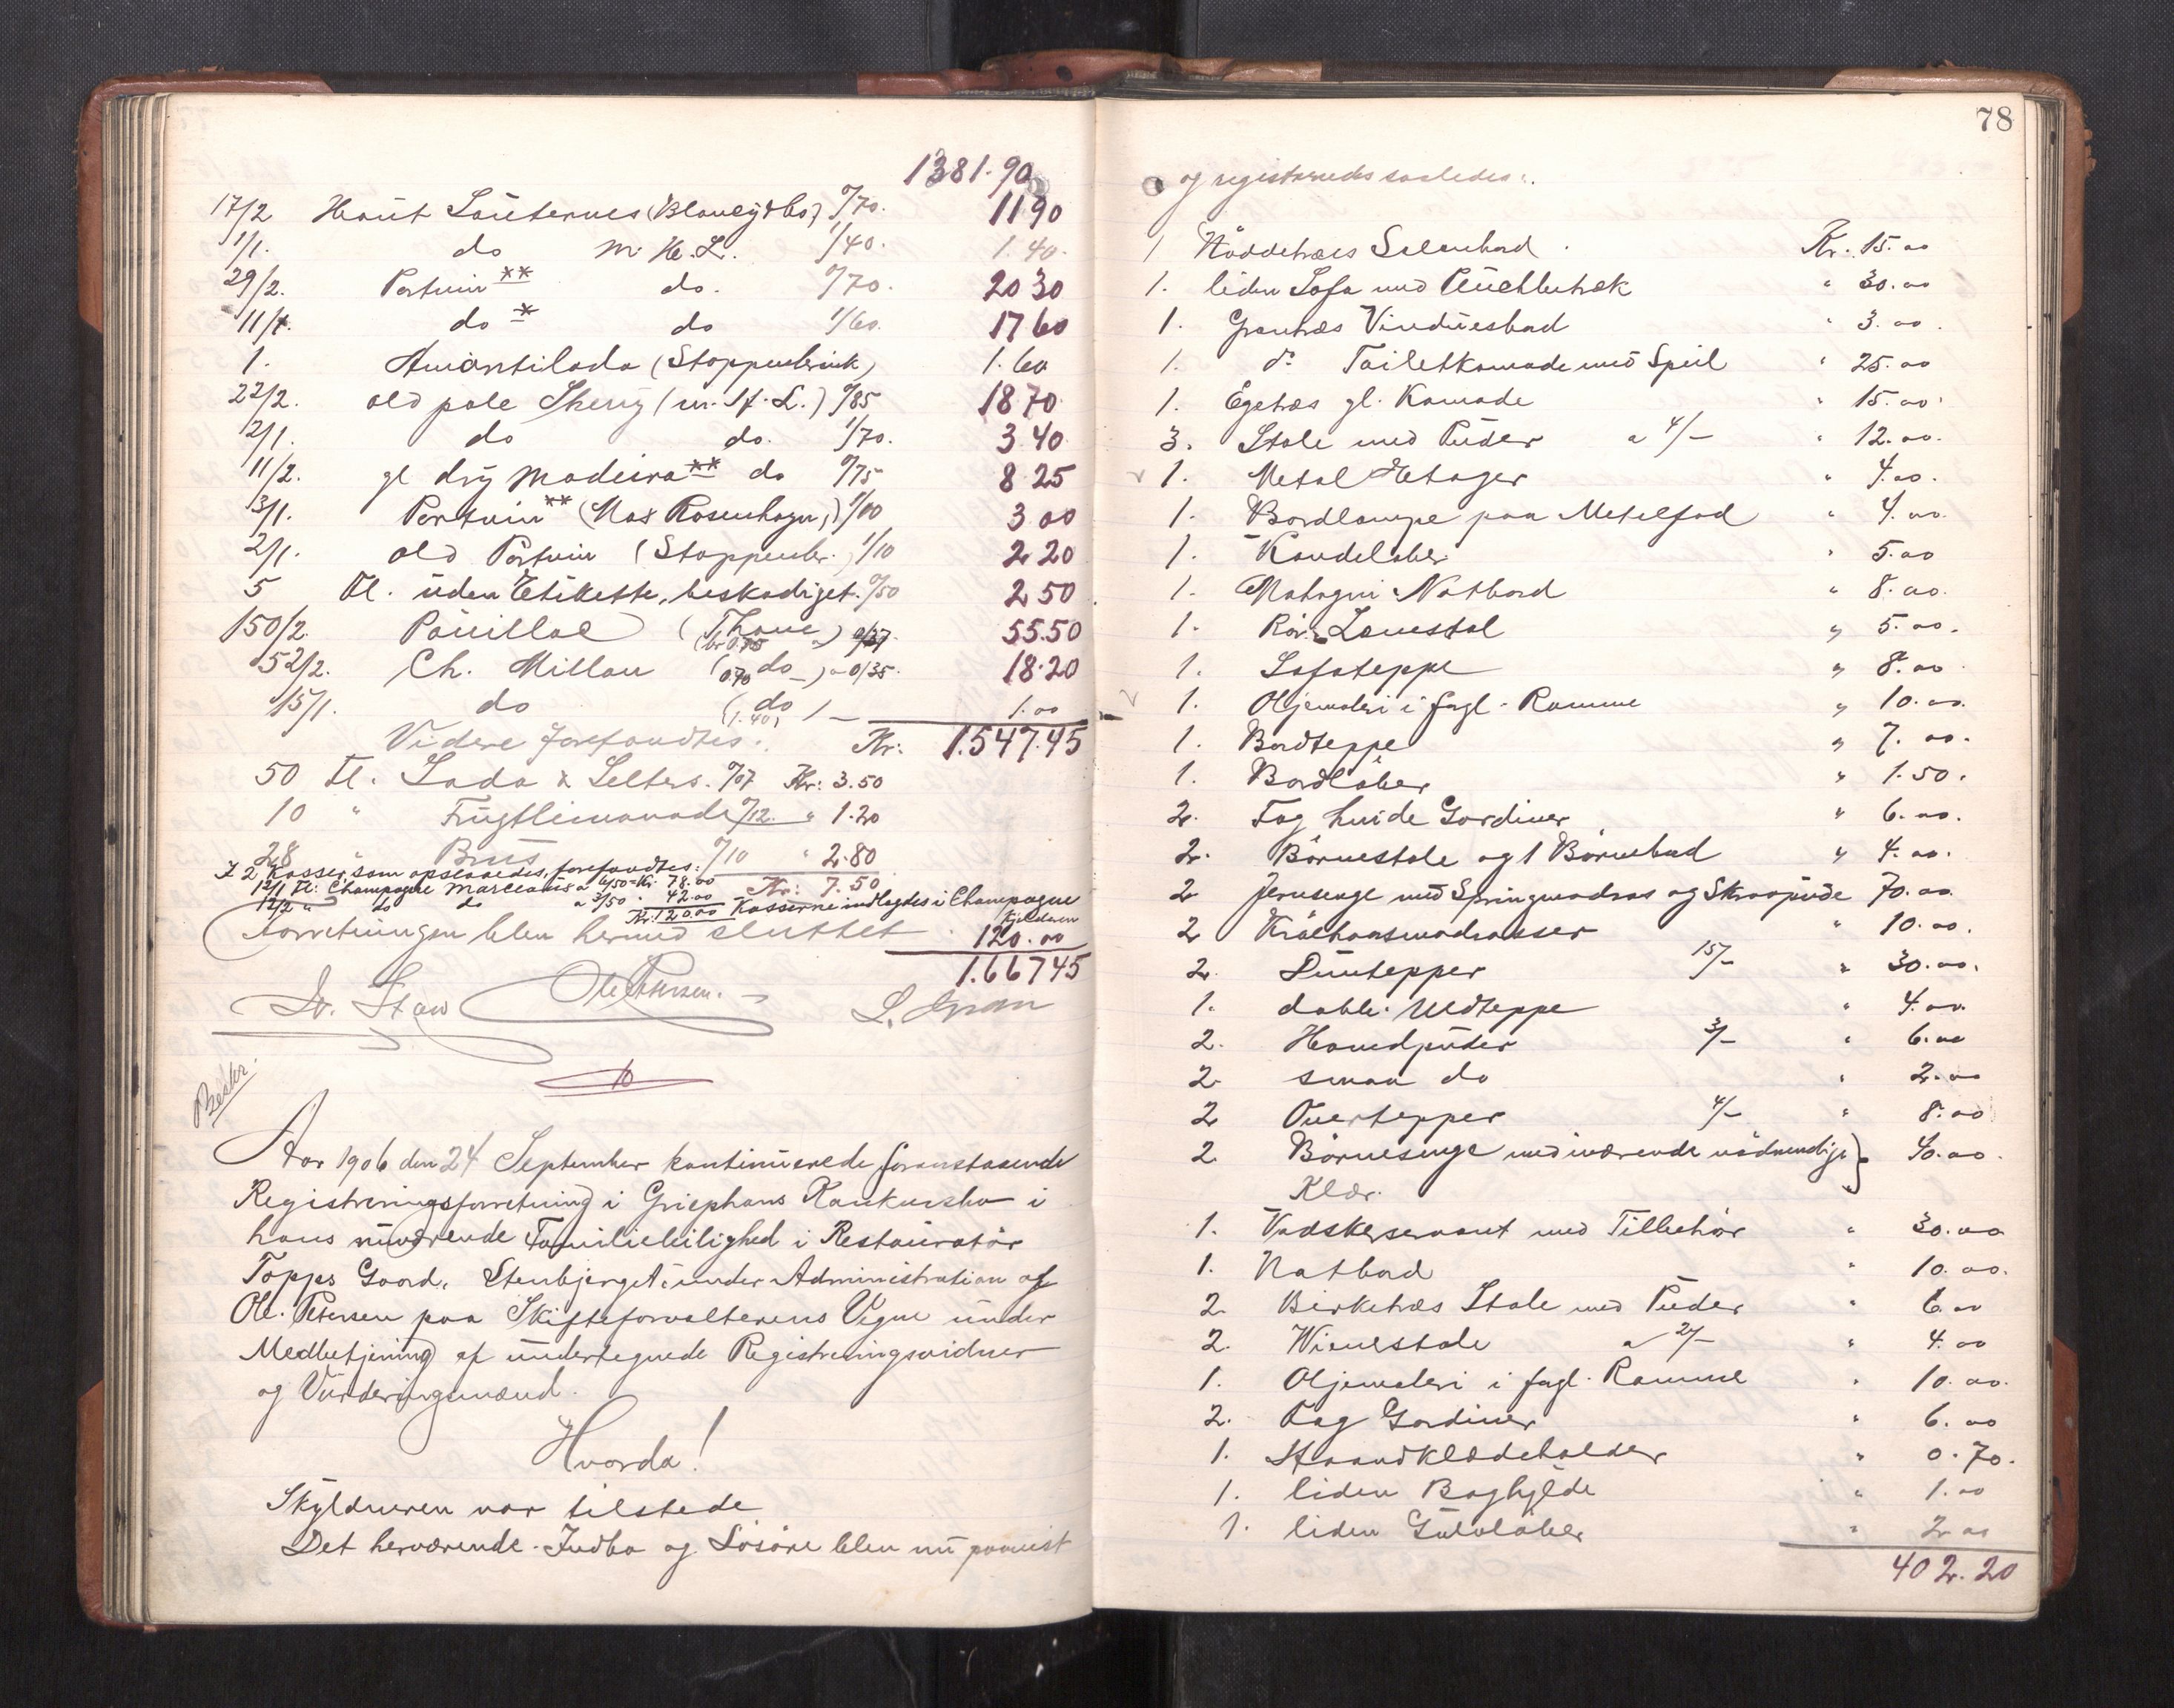 1381.90
17/2 Haut Sauternes (Blancydbo) 0/70. 11 90
1/1. do M. H. L. 1/40. 1.40.
29/2. Portvin ** do. 0/70. 20 30
11/1. do * do 1/60. 17 60
1. Amantilado (Stoppenbrink) 1.60
22/2. old pale Sherry (m. H. L.) 0/85 18 70
2/1. do do. 1/70. 3 40
11/2. gl dry Madeira ** do 0/75 8 25
3/1. Portvin ** (Max Rosenhagn,) 1/00 3 00
2/1. old Portvin (Stoppenbr.) 1/10 2 20
5 Fl. uden Etikette, beskadiget. 0/50 2 50
150/2. Pauillac (Thaue) 0/37. 55.50
52/2. Ch. Millau (0.70 do) a 0/35. 18.20
15/1. do (do 1.40) 1 — 1.00
Videre forefandtes: Kr: 1.547.45
50 Fl. Soda & Selters. 0/07 Kr: 3.50
10 " Frugtlimonade 0/12. " 1.20
28 " Brus 0/10 " 2.80
Kr: 7.50
I 2 Kasser, som opslaaedes, forefandtes:
12/1 Fl: Champagne Marceaux a 6/50 = Kr. 78.00
12/2 " do do a 3/50 " 42.00
Kr: 120.00 Kasserne indlagdes i Champagne
kjelderen
Forretningen blev hermed sluttet. 120.00
1.667 45
Ole Petersen. L. Gran
Aar 1906 den 24 September kontinuerede foranstaaende
Registreringsforretning i Griephans Konkursbo i
hans nuværende Familieleilighed i Restauratør
Topps Gaard, Stenbjerget, under Administration af
Ole Petersen paa Skifteforvalterens Vegne under
Medbetjening af undertegnede Registreringsvidner
og Vurderingsmænd.
Hvorda!
Skyldneren var tilstede
Det herværende Indbo og Løsøre blev nu paavist
78
og registreredes saaledes:.
1 Nøddetræes Salonbord Kr. 15.00
1. liden Sofa med Plüchbetræk " 30.00
1. Grantræs Vinduesbord " 3.00.
1. do Toiletkomode med Speil " 25.00
1. Egetræs gl. Komode " 15.00.
3. Stole med Puder a 4/— " 12.00.
1. Metal Etager " 4.00.
1. Bordlampe paa Metalfod " 4.00.
1. Kandelaber " 5.00
1. Mahogni Natbord " 8.00.
1. Rør- Lænestol " 5.00.
1. Sofateppe " 8.00
1. Oljemaleri i fgl. Ramme " 10.00.
1. Bordteppe " 7.00.
1. Bordløber " 1.50.
2. Fag hvide Gardiner " 6.00.
2. Børnestole og 1 Børnebord " 4.00.
2 Jernsenge med Springmadras og Skraapude 70.00.
2 Krølhaarsmadrasser " 10.00.
2 Duntepper 15/— " 30.00.
1. dobb. Uldteppe " 4.00.
2. Hovedpuder 3/— " 6.00
2 smaa do " 2.00
2 Overtepper 4/— " 8.00
2 Børnesenge med iværende nødvendige } 40.00.
Klær.
1. Vaskeservant med Tilbehør " 30.00
1. Natbord " 10.00.
2 Birketræs Stole med Puder " 6.00
2. Wienerstole a 2/— " 4.00
1. Oljemaleri i fgl. Ramme " 10.00.
2. Fag Gardiner " 6.00
1. Haandklædeholder " 0.70.
1. liden Boghylde " 1.00
1. liden Gulvløber " 2.00
402.20